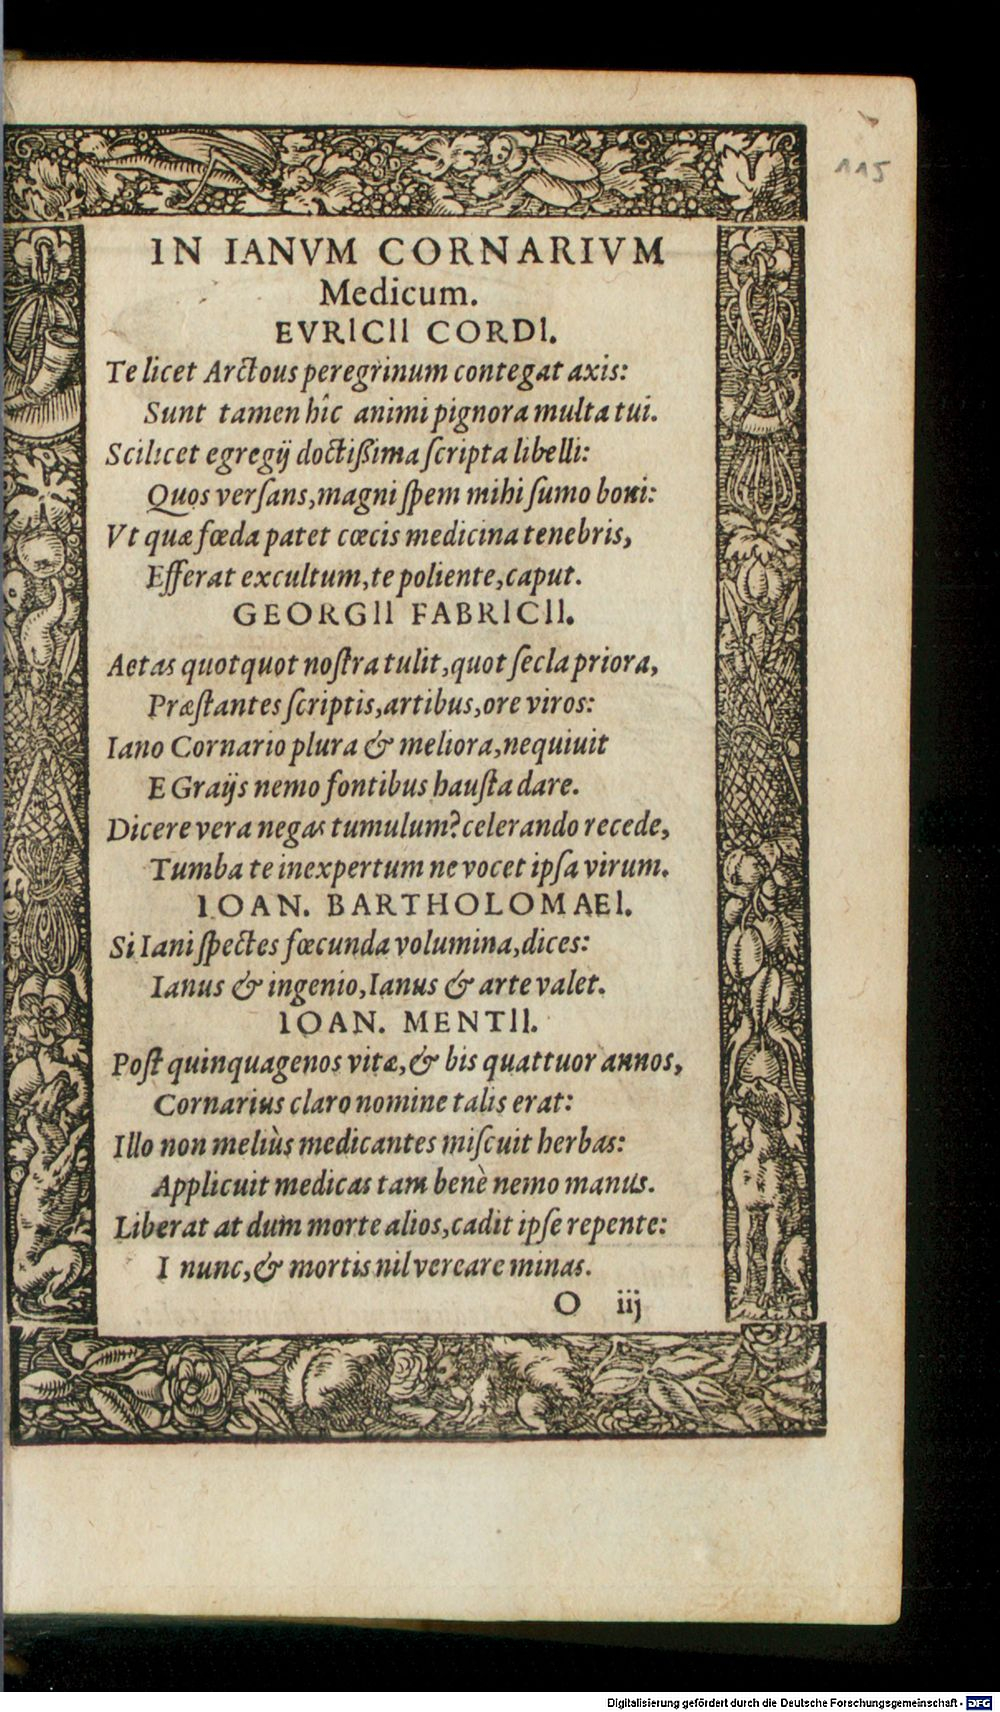 115
IN IANVM CORNARIVM
Medicum.
EVRICII CORDI.
Te licet Arctous peregrinum contegat axis:
Sunt tamen hîc animi pignora multa tui.
Scilicet egregij doctißima ſcripta libelli:
Quos verſans, magni ſpem mihi ſumo boni:
Vt quæ fœda patet cœcis medicina tenebris,
Efferat excultum, te poliente, caput.
GEORGII FABRICII.
Aetas quotquot noſtra tulit, quot ſecla priora,
Præſtantes ſcriptis, artibus, ore viros:
Iano Cornario plura & meliora, nequiuit
E Graijs nemo fontibus hauſta dare.
Dicere vera negas tumulum? celerando recede,
Tumba te inexpertum ne vocet ipſa virum.
IOAN. BARTHOLOMAEI.
Si Iani ſpectes fœcunda volumina, dices:
Ianus & ingenio, Ianus & arte valet.
IOAN. MENTII.
Poſt quinquagenos vitæ, & bis quattuor annos,
Cornarius claro nomine talis erat:
Illo non meliùs medicantes miſcuit herbas:
Applicuit medicas tam benè nemo manus.
Liberat at dum morte alios, cadit ipſe repente:
I nunc, & mortis nil vereare minas.
O iij
Digitalisierung gefördert durch die Deutsche Forschungsgemeinschaft - DFG